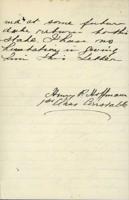 at some future
date return to this
state I have no
hesitancy in giving
him this Letter
Henry R. Hoffmann